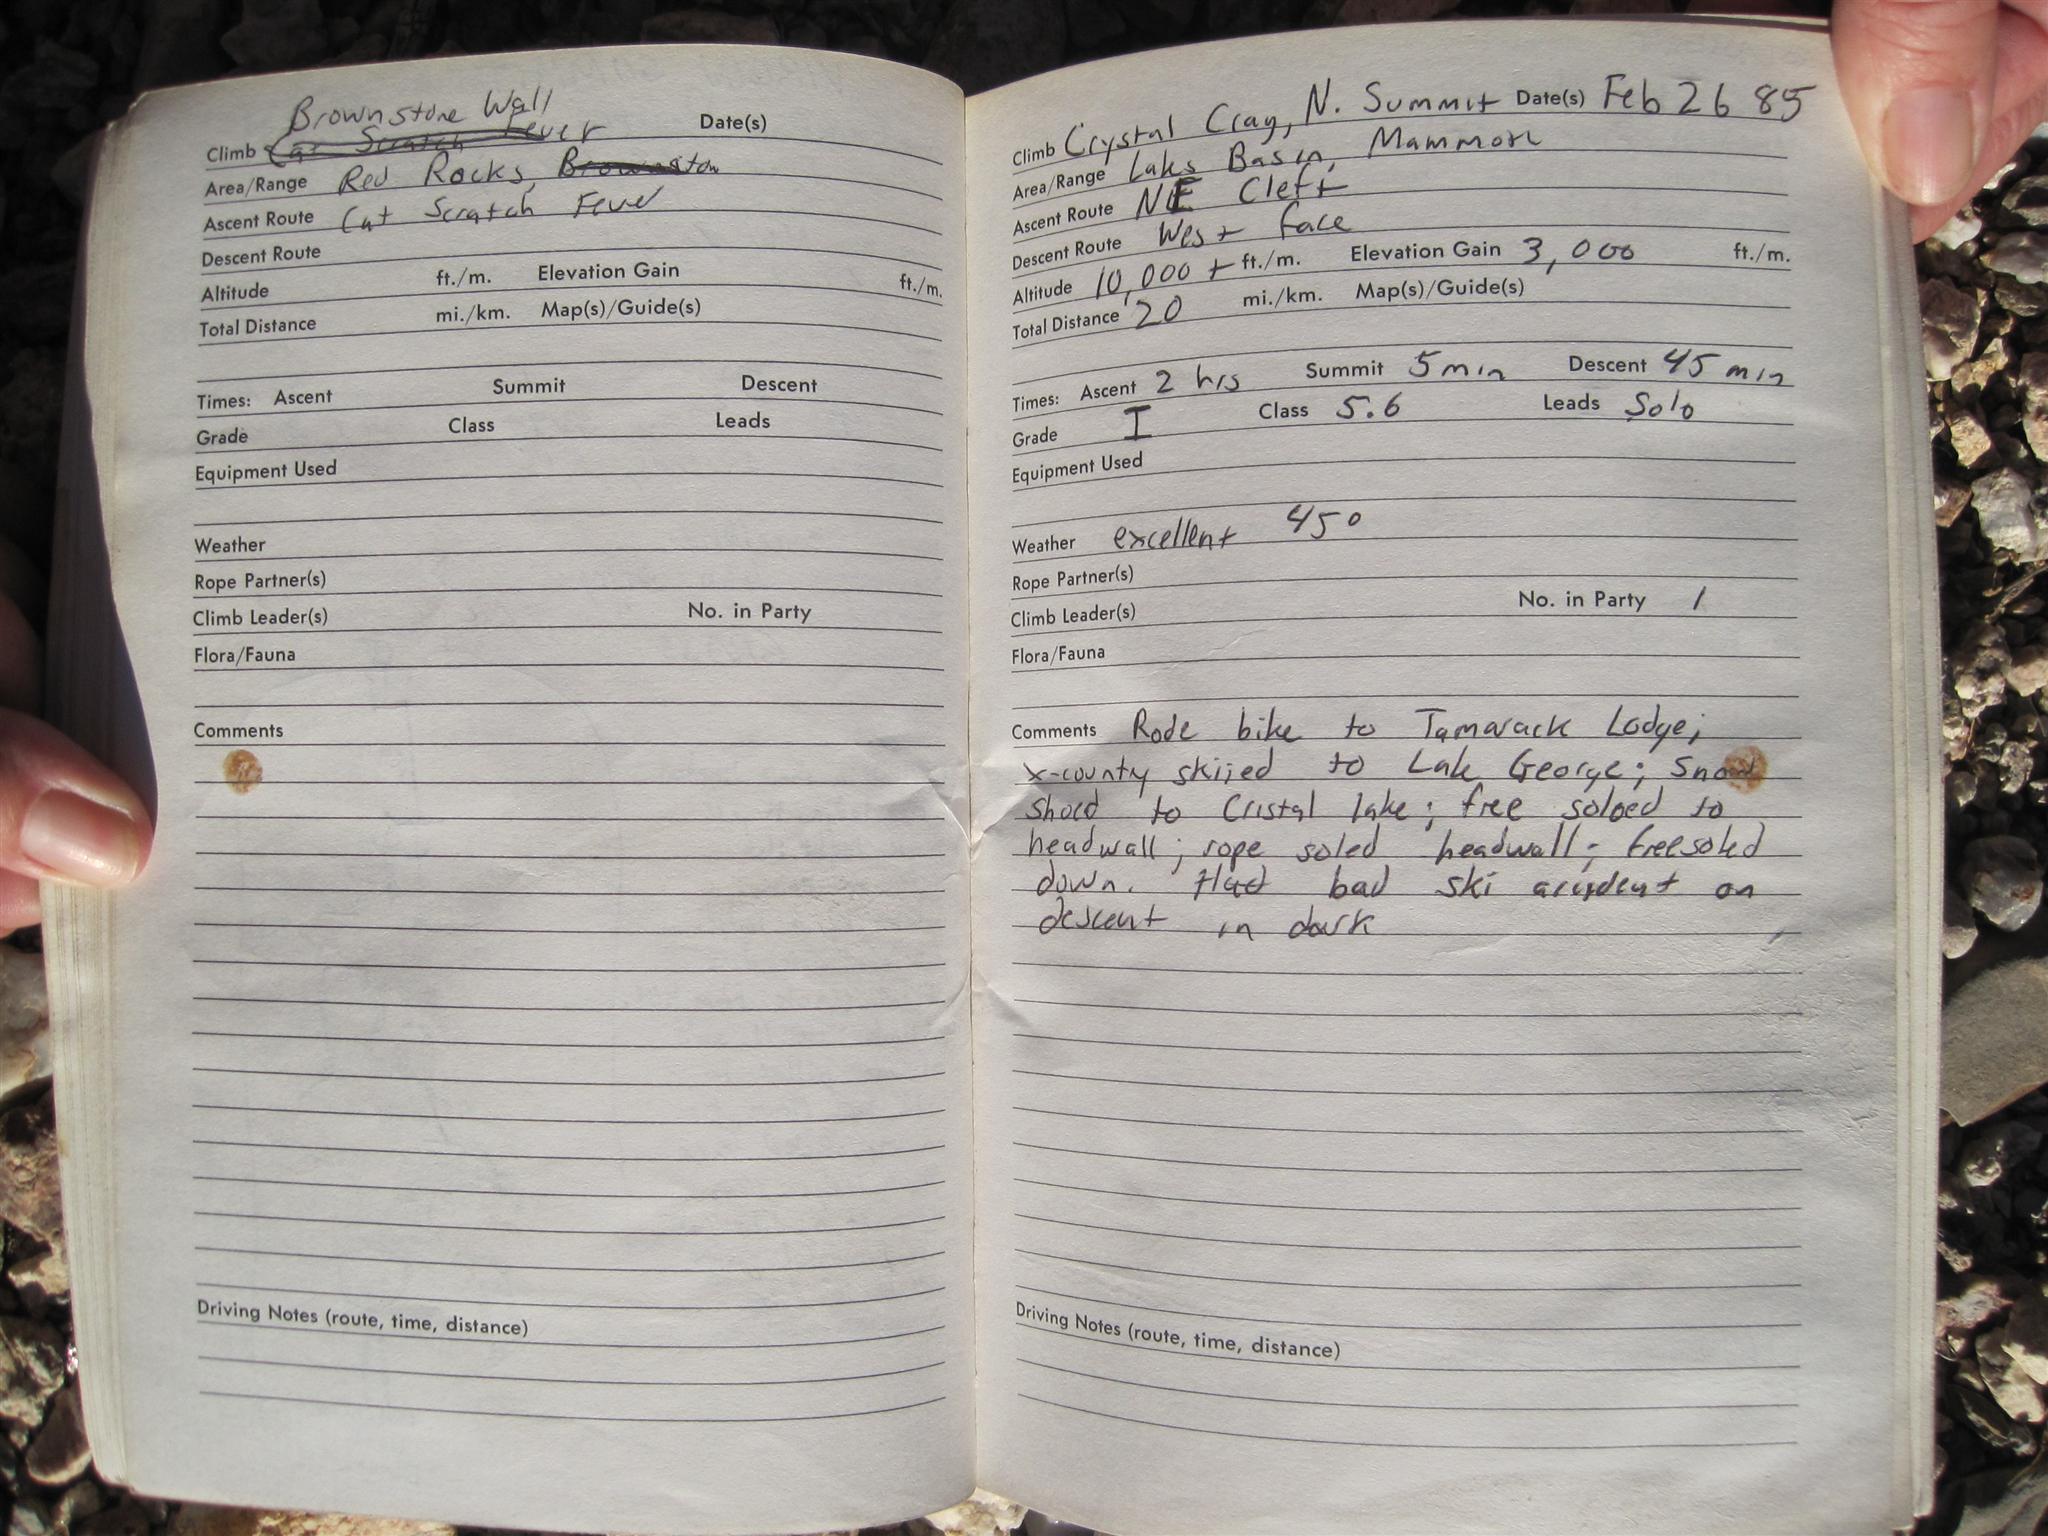 Brownstone Wall
Climb Cat Scratch Fever Date(s)
Area/Range Red Rocks, Brownston
Ascent Route Cat Scratch Fever
Descent Route
Altitude ft./m. Elevation Gain ft./m.
Total Distance mi./km. Map(s)/Guide(s)
Times: Ascent Summit Descent
Grade Class Leads
Equipment Used
Weather
Rope Partner(s)
Climb Leader(s) No. in Party
Flora/Fauna
Comments
Driving Notes (route, time, distance)
Climb Crystal Crag, N. Summit Date(s) Feb 26 85
Area/Range Laks Basin, Mammoth
Ascent Route NE Cleft
Descent Route West face
Altitude 10,000 + ft./m. Elevation Gain 3,000 ft./m.
Total Distance 20 mi./km. Map(s)/Guide(s)
Times: Ascent 2 hrs Summit 5 min Descent 45 min
Grade I Class 5.6 Leads Solo
Equipment Used
Weather excellent 45°
Rope Partner(s)
Climb Leader(s) No. in Party 1
Flora/Fauna
Comments Rode bike to Tamarack Lodge;
x-county skiied to Lake George; Snow
shoed to Cristal lake; free soloed to
headwall; rope soled headwall; freesoled
down. Had bad ski accident on
descent in dark
Driving Notes (route, time, distance)